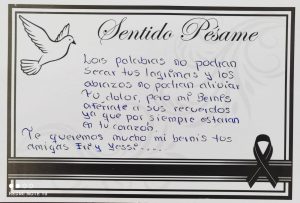 Sentido Pésame
Las palabras no podran
secar tus lagrimas y los
abrazos no podran aliviar
tu dolor, pero mi Bernis
aferrate a sus recuerdos
ya que por siempre estaran
en tu corazon.
Te queremos mucho mi bernis tus
amigas Fri y Yessi....